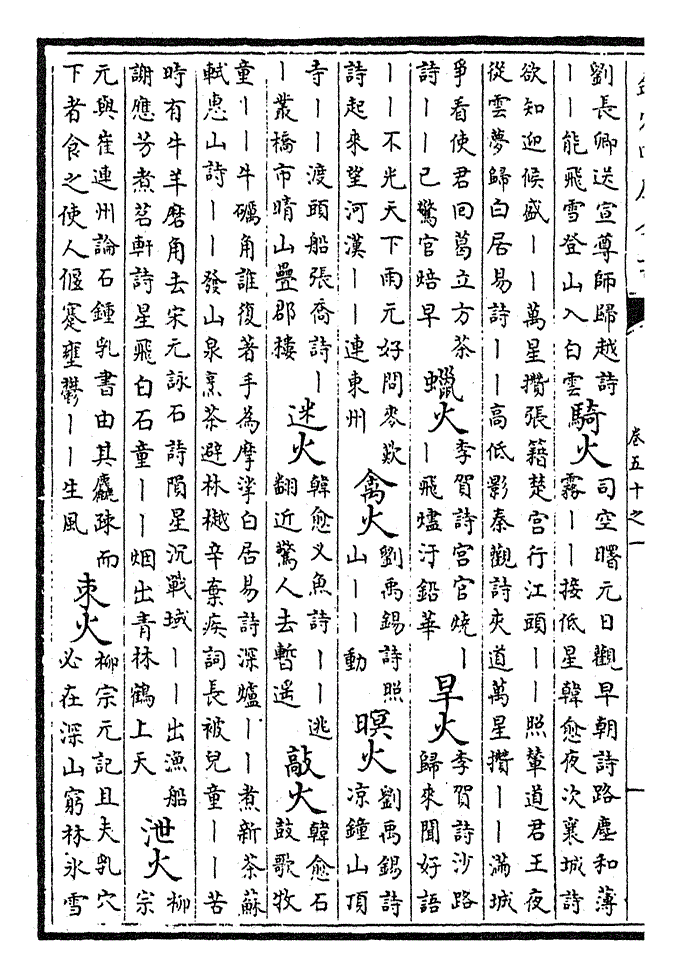 卷五十之一
劉長卿送宣尊師歸越詩
丨丨能飛雪登山入白雲
騎火
司空曙元日觀早朝詩路塵和薄
霧丨丨接低星韓愈夜次襄城詩
欲知迎候盛丨丨萬星攢張籍楚宮行江頭丨丨照輦道君王夜
從雲夢歸白居易詩丨丨高低影秦觀詩夾道萬星攢丨丨滿城
爭看使君回葛立方茶
詩丨丨已驚官焙早
蠟火
李賀詩宮官燒丨
丨飛燼汙鉛華
旱火
李賀詩沙路
歸來聞好語
丨丨不光天下雨元好問麥歎
詩起來望河漢丨丨連東州
禽火
劉禹錫詩照
山丨丨動
暝火
劉禹錫詩
凉鐘山頂
寺丨丨渡頭船張喬詩丨
丨叢橋市晴山疊郡樓
迷火
韓愈叉魚詩丨丨逃
翻近驚人去暫遥
敲火
韓愈石
鼓歌牧
童丨丨牛礪角誰復著手為摩挲白居易詩深爐丨丨煮新茶蘇
軾惠山詩丨丨發山泉烹茶避林樾辛棄疾詞長被兒童丨丨苦
時有牛羊磨角去宋元詠石詩隕星沉戰域丨丨出漁船
謝應芳煮茗軒詩星飛白石童丨丨烟出青林鶴上天
泄火
柳
宗
元與崔連州論石鍾乳書由其麤疎而
下者食之使人偃蹇壅鬱丨丨生風
束火
柳宗元記且夫乳穴
必在深山窮林氷雪